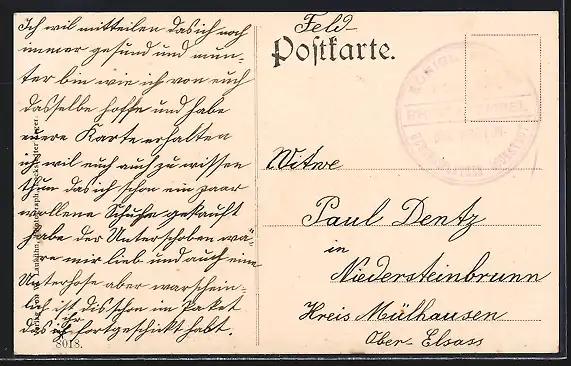 Ich wil mitteilen das ich noch
immer gesund und mun-
ter bin wie ich von euch
dasselbe hoffe und habe
euere Karte erhalten
ich wil euch auch zu wissen
thun das ich schon ein paar
wollene Schuhe gekauft
habe der Unterschoben wä-
re mir lieb und auch eine
Unterhose aber warschein-
lich ist dis schon im Paket
das ihr fortgeschikt habt.
8018.
Feld-
Postkarte.
Witwe
Paul Dentz
in
Niedersteinbrunn
Kreis Mülhausen
Ober-Elsass